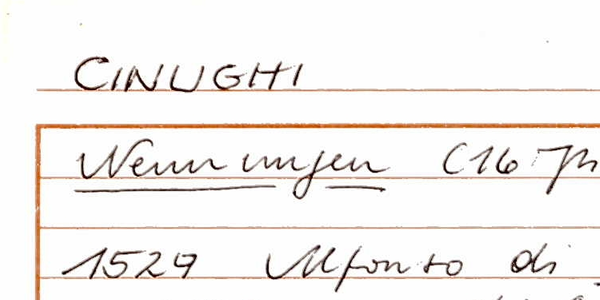 CINUGHI
Nennungen (16 Jh
1529 Alfonso di